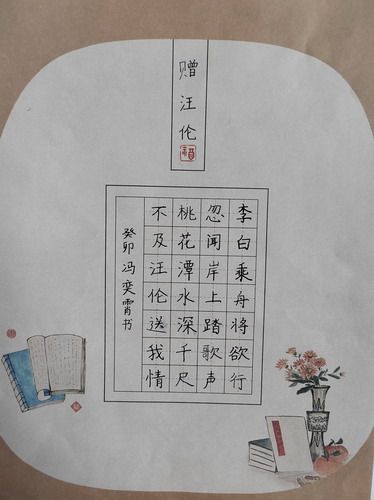 赠汪伦
李白乘舟将欲行
忽闻岸上踏歌声
桃花潭水深千尺
不及汪伦送我情
癸卯冯奕霄书